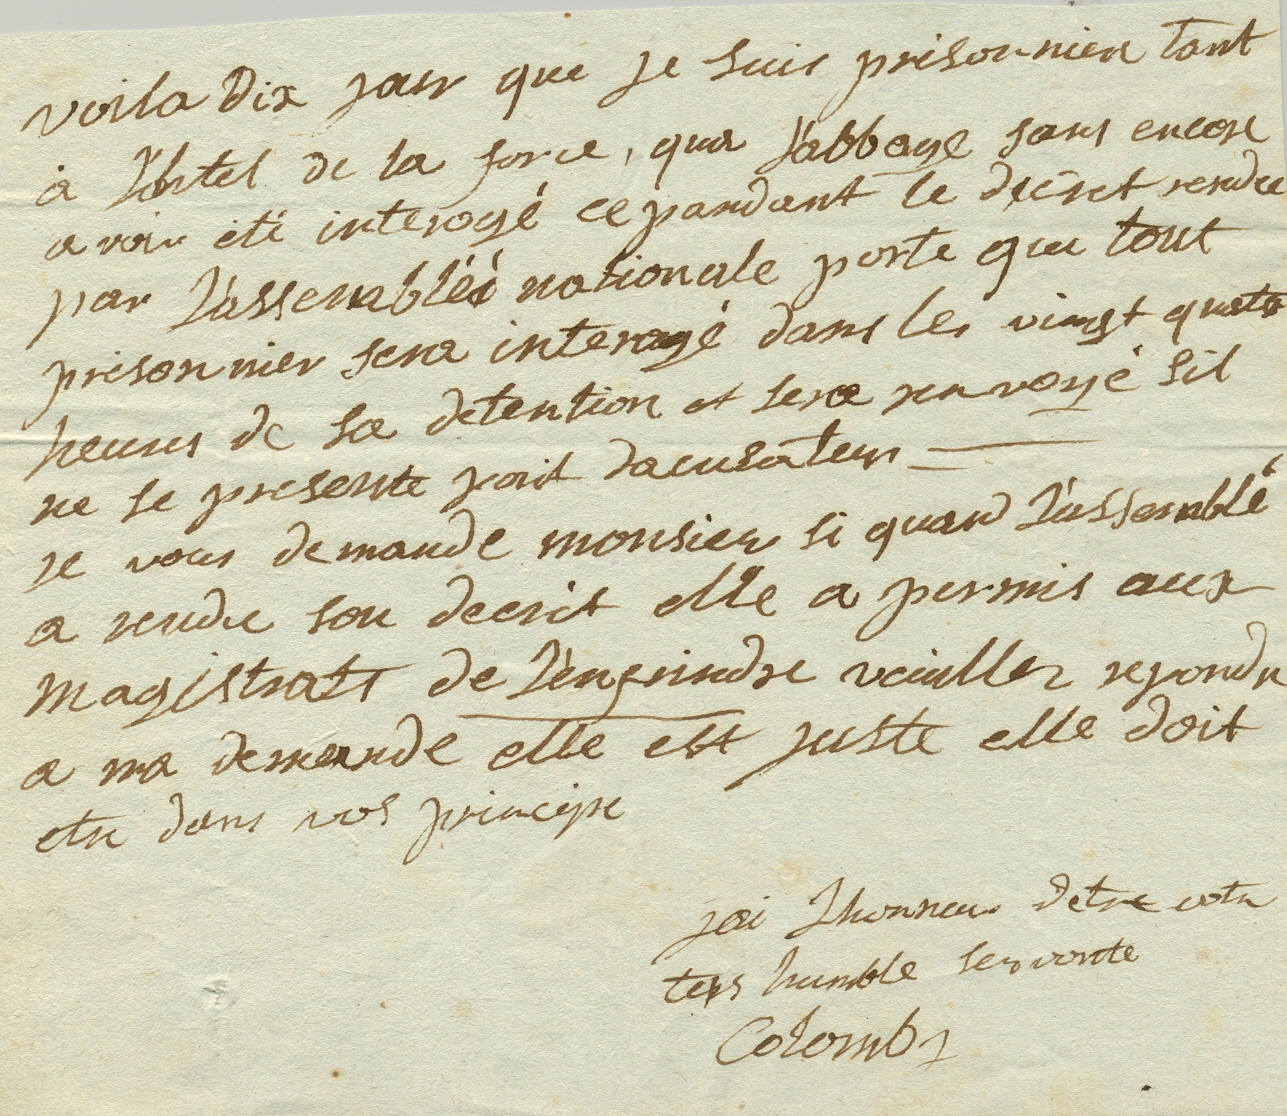 voila dix jour que je suis prisonnier tant
a l'hotel de la force, qua l'abbaye sans encore
avoir été interogé cependant le décret rendu
par l'assembleé nationale porte que tout
prisonnier sera interogé dans les vingt quatre
heures de sa detention et sera renvoyé sil
ne se presente point dacusateur
je vous demande monsieur si quand l'assemblé
a rendu son decret elle a permis aux
magistrats de l'enfreindre veuillez repondre
a ma demande elle est juste elle doit
etre dans vos principe
jai lhonneur detre votre
tres humble servante
Colomb